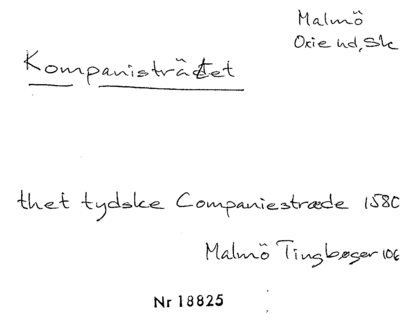 Malmö
Oxie hd, Sk
Kompanisträtet
thet tydske Companiestræde 1580
Malmö Tingbøger 106
Nr 18825